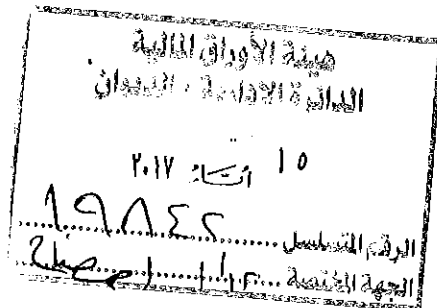 هيئة الأوراق المالية
الدائرة الإدارية - الديوان
١٥ ٢٠١٧
الرقم المتسلسل ١٩٨٤٢
الجهة المختصة